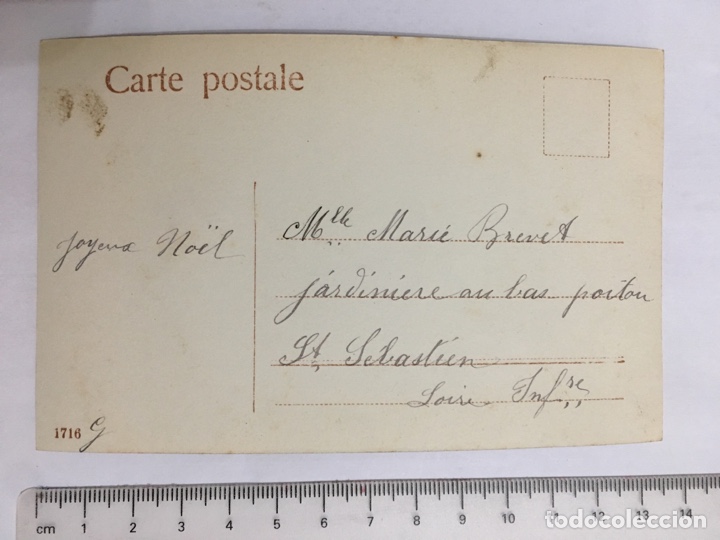 Carte postale
joyeux Noël
Mlle Marie Brevet
jardiniere au bas poitou
St Sebastien
Loire Infre
1716 G
cm 1 2 3 4 5 6 7 8 9 10 11 12 13 14
todocoleccion